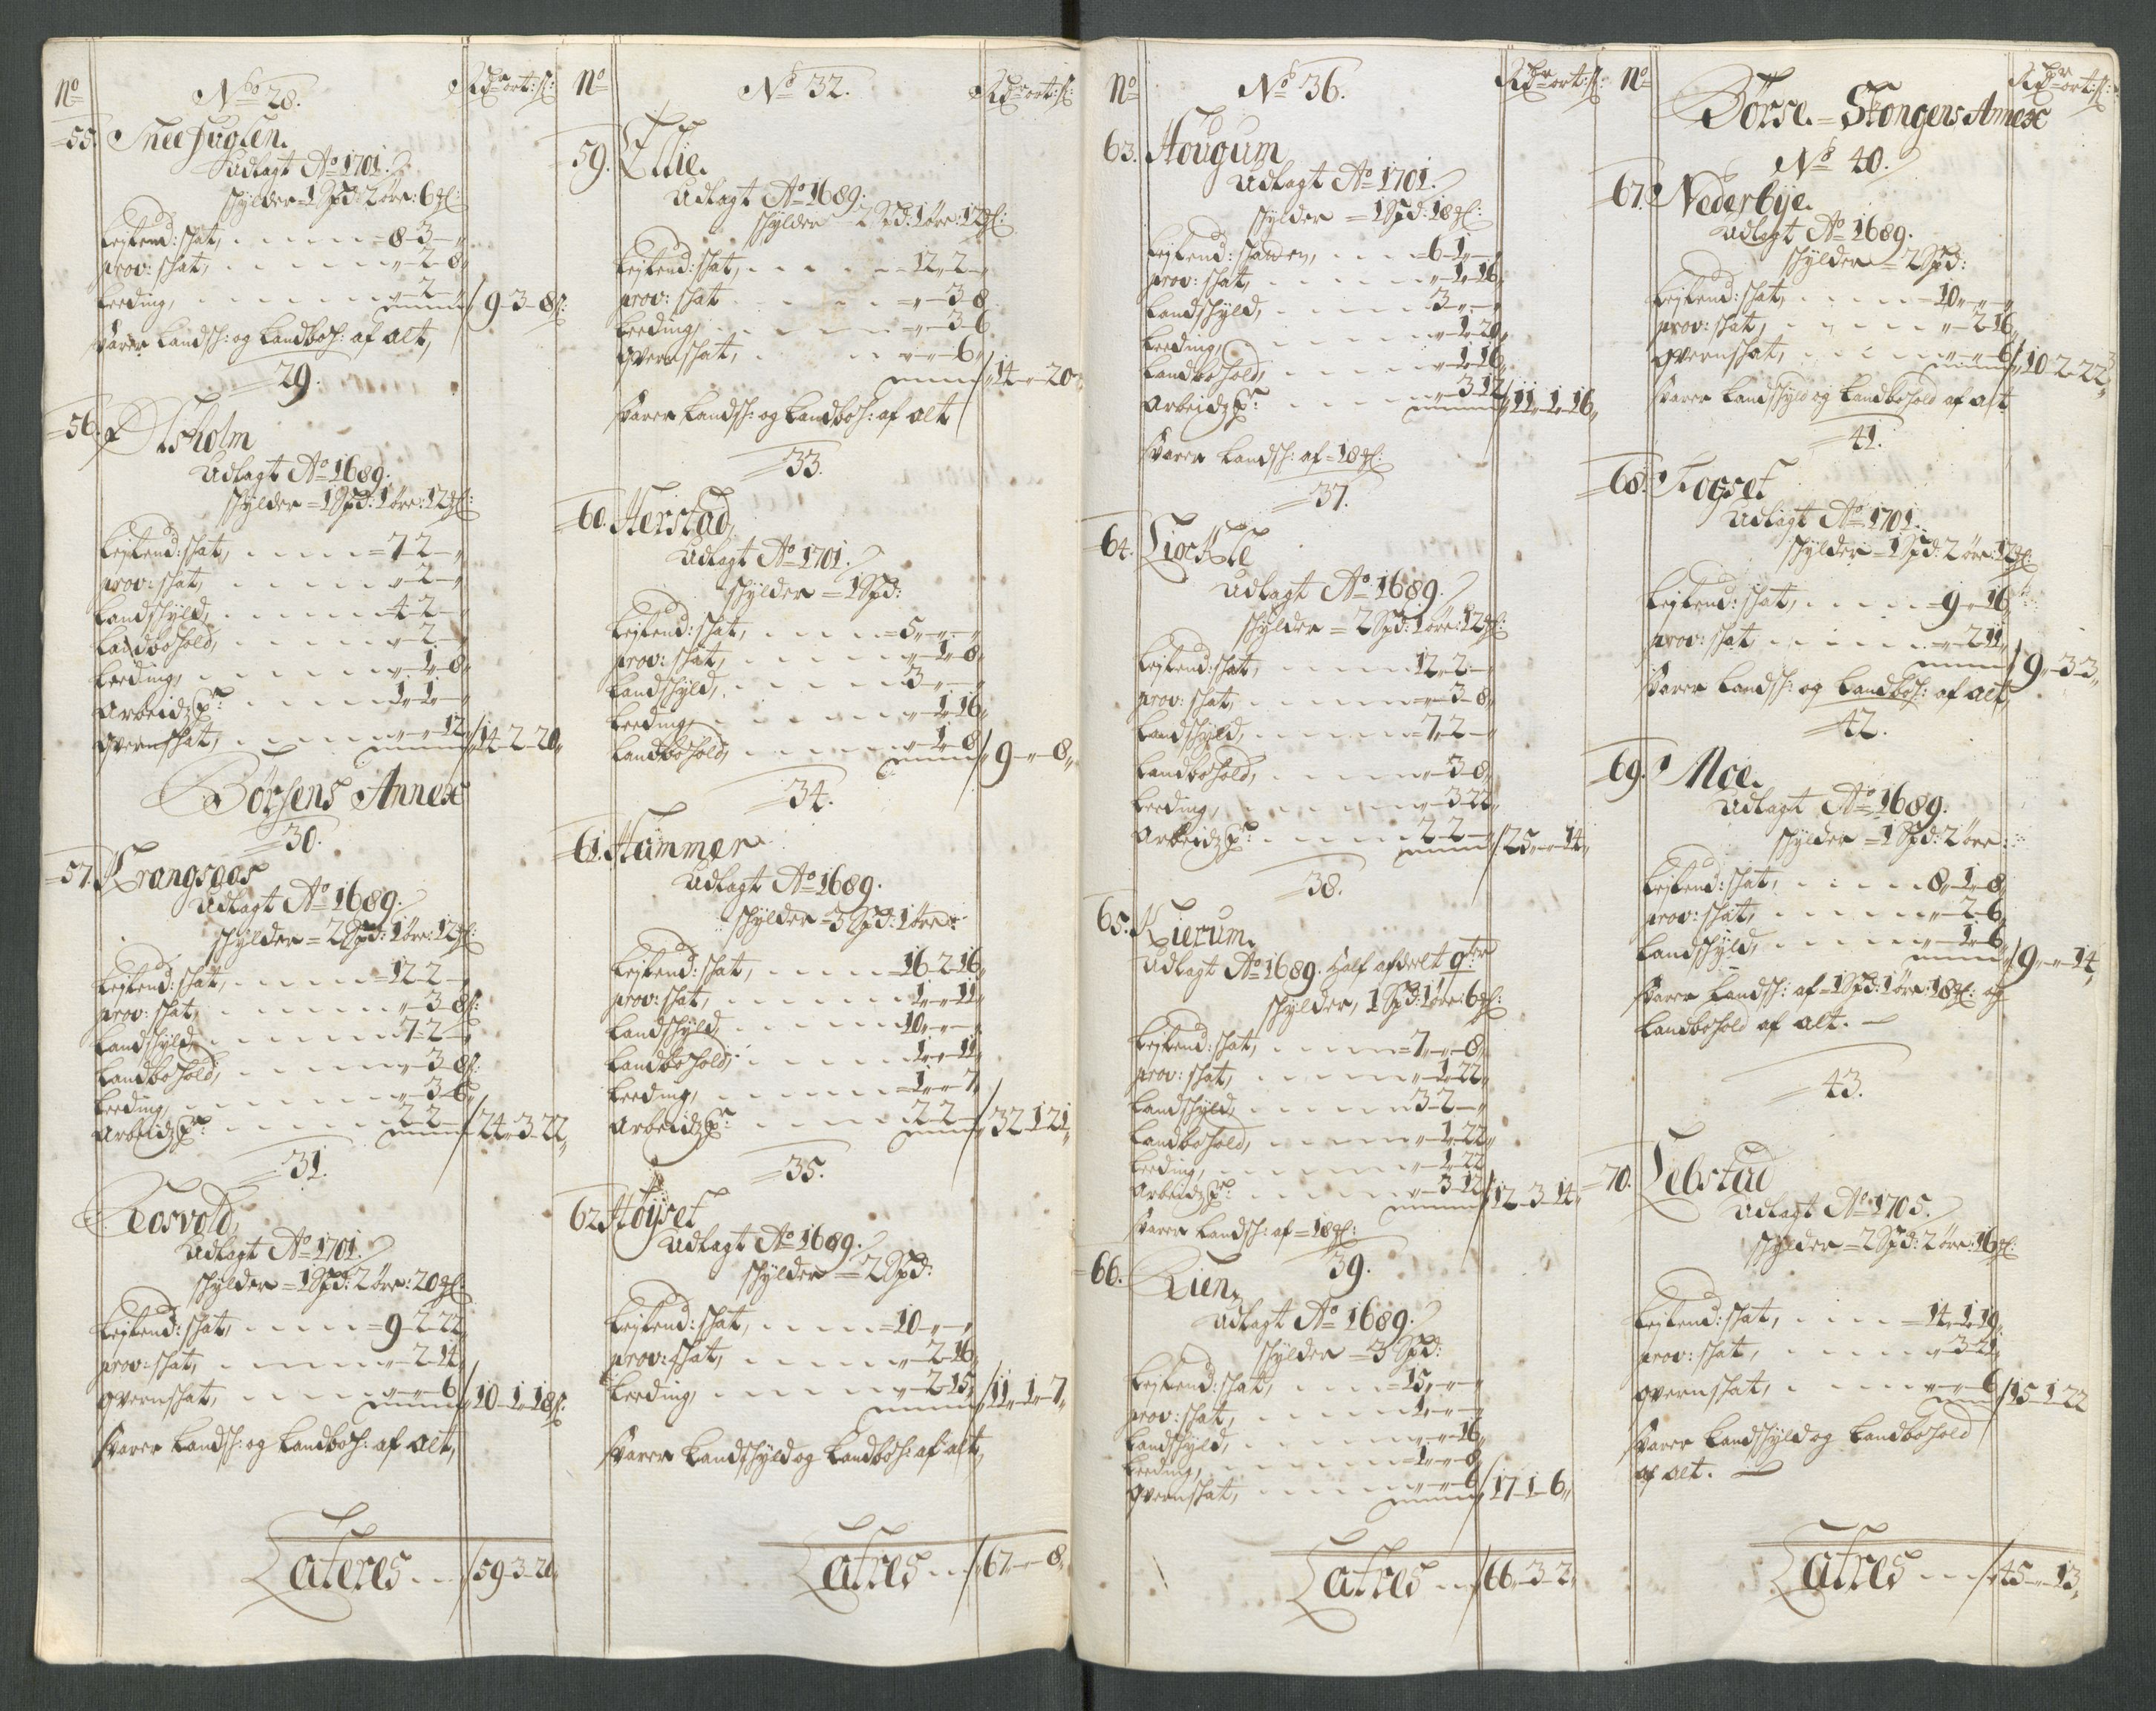 No
No 28.
Rdr ort: s:
55. Sneefuglen.
Udlagt Ao 1701.
schylder = 1 Spd: 2 öre: 6 ℳ:
Leilend: schat, = 8 - 3 - "
prov: schat, " - 2 - 8 "
Leeding, " - 2 - " / 9 - 3 - 8 s:
svarer Landsch: og Landboh: af alt,
29.
56. Olsholm
Udlagt Ao 1689.
schylder = 1 Spd: 1 öre: 12 ℳ:
Leilend: schat, = 7 - 2 - "
prov: schat, " - 2 - "
Landschyld, 4 - 2 - "
Landbohold, " - 2 - "
Leeding, " - 1 - 8 "
Arbeidz pr: 1 - 1 - "
qvernschat, " - " - 12 / 14 - 2 - 20 "
Börsens Annex
30.
57. Krangsaas
Udlagt Ao 1689.
schylder = 2 Spd: 1 öre: 12 ℳ:
Leilend: schat, = 12 - 2 - "
prov: schat, " - 3 - 8 s:
Landschyld, 7 - 2 - "
Landbohold, " - 3 - 8 s:
Leeding, " - 3 - 6 "
Arbeidz pr: 2 - 2 - " / 24 - 3 - 22 "
31.
Rosvold,
Udlagt Ao 1701.
schylder = 1 Spd: 2 öre: 20 ℳ:
Leilend: schat, = 9 - 2 - 22 "
prov: schat, " - 2 - 14 "
qvernschat, " - " - 6 / 10 - 1 - 18 s:
svarer Landsch: og Landboh: af alt,
Lateres / 59 - 3 - 20 "
No
No 32.
Rdr ort: s:
59. Ellie.
Udlagt Ao 1689.
schylder 2 Spd: 1 öre: 12 ℳ:
Leilend: schat, = 12 - 2 - "
prov: schat = " - 3 - 8
Leeding, = " - 3 - 6
qvernschat, " - " - 6 " / 14 - " - 20 "
svarer Landsch: og Landboh: af alt
33.
60. Herstad,
Udlagt Ao 1701.
schylder = 1 Spd:
Leilend: schat, = 5 - " - "
prov: schat, " - 1 - 8 "
Landschyld, 3 - " - "
Leeding, " - 1 - 16 "
Landbohold, " - 1 - 8 / 9 - " - 8 "
34.
61. Hammer
Udlagt Ao 1689.
schylder = 3 Spd: 1 öre:
Leilend: schat, = 16 - 2 - 16 "
prov: schat, 1 - " - 11 "
Landschyld 10 - " - "
Landbohold, 1 - " - 11 "
Leeding, = 1 - " - 7 "
Arbeidz pr: 2 - 2 - " / 32 - 1 - 21 "
35.
62. Höyset
Udlagt Ao 1689.
schylder = 2 Spd:
Leilend: schat, = 10 - " - "
prov: schat, " - 2 - 16 "
Leeding, " - 2 - 15 / 11 - 1 - 7 "
svarer Landschyld og Landboh: af alt,
Latres / 67 - " - 8 "
No
No 36.
Rdr ort: s:
63. Hougum
Udlagt Ao 1701.
schylder = 1 Spd: 18 ℳ:
Leilend: schatten, = 6 - 1 - "
prov: schat, " - 1 - 16 "
Landschyld, 3 - " - "
Leeding, " - 1 - 20 "
Landbohold, " - 1 - 16 "
Arbeidz pr: " - 3 - 12 / 11 - 1 - 16 "
svarer Landsch: af = 18 ℳ:
37.
64. Liockle
Udlagt Ao 1689.
schylder = 2 Spd: 1 öre: 12 ℳ:
Leilend: schat, 12 - 2 - "
prov: schat, = " - 3 - 8 "
Landschyld, = 7 - 2 - "
Landbohold, " - 3 - 8 "
Leeding, " - 3 - 22 "
Arbeidz pr: 2 - 2 - " / 25 - " - 14 "
38.
65. Kierum.
Udlagt Ao 1689. Half afdeelt 9ter
schylder, 1 Spd: 1 öre: 6 ℳ:
Leilend: schat, = 7 - " - 8 "
prov: schat, " - 1 - 22 "
Landschyld, 3 - 2 - "
Landbohold, " - 1 - 22 "
Leeding, " - 1 - 22
Arbeidz pr: " - 3 - 12 / 12 - 3 - 14 "
svarer Landsch: af = 18 ℳ:
39.
66. Rien,
Udlagt Ao 1689.
schylder = 3 Spd:
Leilend: schat, = 15 - " - "
prov: schat, 1 - " - "
Landschyld, " - " - 16 "
Leeding, = 1 - " - 8
qvernschat, " - " - 6 / 17 - 1 - 6 "
Latres / 66 - 3 - 2 "
No
Rdr ort: s:
Börse = Stongens Annex
No 40.
67. Nederbye.
Udlagt Ao 1689.
schylder = 2 Spd:
Leilend: schat, = 10 - " - "
prov: schat, " - 2 - 16 "
qvernschat, " - " - 6 / 10 - 2 - 22 "
svarer Landschyld og Landbohold af alt
41.
68. Rogset
Udlagt Ao 1701.
schylder = 1 Spd: 2 öre: 12 ℳ:
Leilend: schat, = 9 - " - 16
prov: schat " - 2 - 11 " / 9 - 3 - 3 "
svarer Landsch: og Landboh: af alt,
42.
69. Moe.
Udlagt Ao 1689.
schylder = 1 Spd: 2 öre:
Leilend: schat, 8 - 1 - 8 "
prov: schat, " - 2 - 6 "
Landschyld, " - 1 - 6 " / 9 - " - 14 "
svarer Landsch: af = 1 Spd: 1 öre: 18 ℳ: og
Landbohold af alt.
43.
70. Lebstad
Udlagt Ao 1705.
schylder = 2 Spd: 2 öre: 16 ℳ:
Leilend: schat, = 14 - 1 - 19 "
prov: schat, " - 3 - 21 "
qvernschat, " - " - 6 / 15 - 1 - 22
svarer Landschyld og Landbohold
af alt.
Latres / 45 - " - 13 "